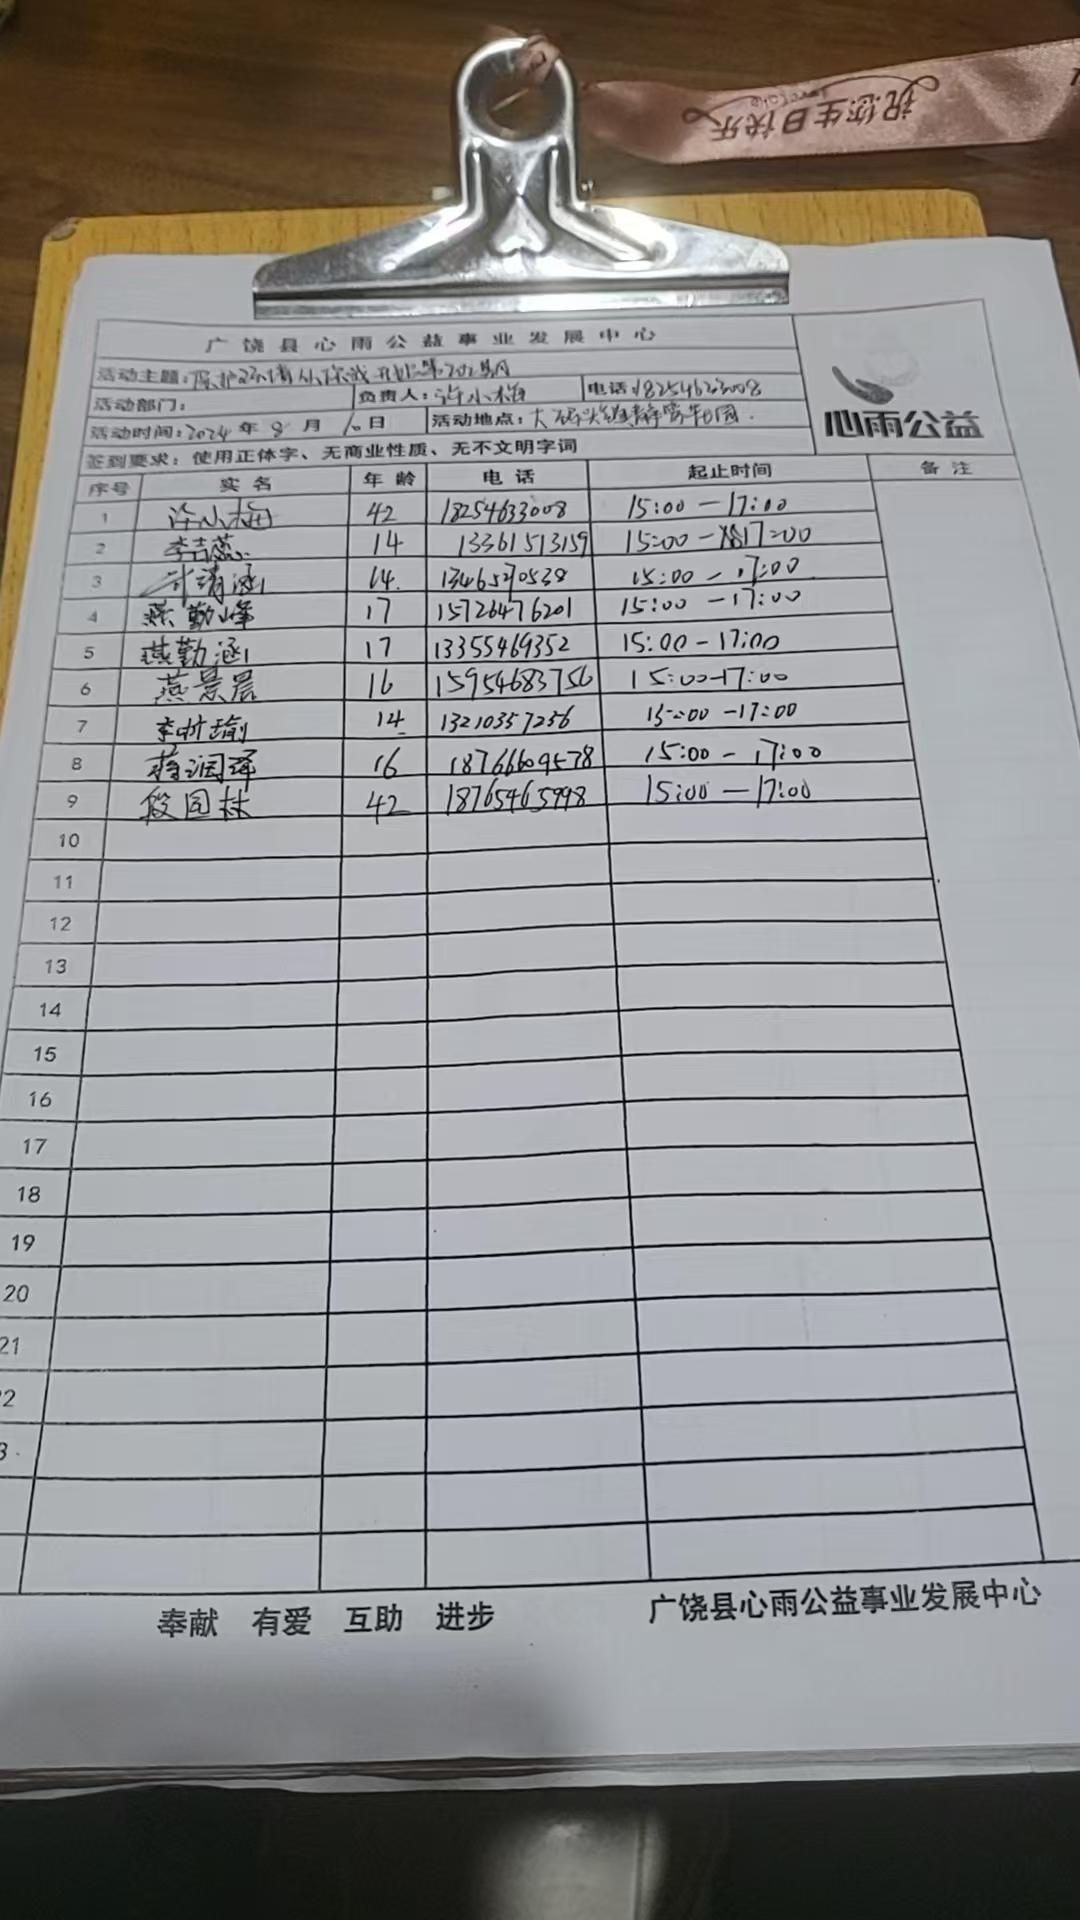 祝您生日快乐
广饶县心雨公益事业发展中心
活动主题:保护环境从你我开始第202期
活动部门: 负责人:许小梅 电话:18254633008
活动时间:2024年8月10日 活动地点:大码头镇
心雨公益
签到要求:使用正体字、无商业性质、无不文明字词
序号 实名 年龄 电话 起止时间 备注
1 许小梅 42 18254633008 15:00-17:00
2 李吉蕊 14 13361513159 15:00-17:00
3 清涵 14 13465270538 15:00-17:00
4 燕勤峰 17 15726476201 15:00-17:00
5 燕勤涵 17 13355469352 15:00-17:00
6 燕景晨 16 15954683756 15:00-17:00
7 李树瑜 14 13210357256 15:00-17:00
8 蒋润泽 16 18766609578 15:00-17:00
9 段园林 42 18765465998 15:00-17:00
10
11
12
13
14
15
16
17
18
19
20
21
22
奉献 有爱 互助 进步 广饶县心雨公益事业发展中心